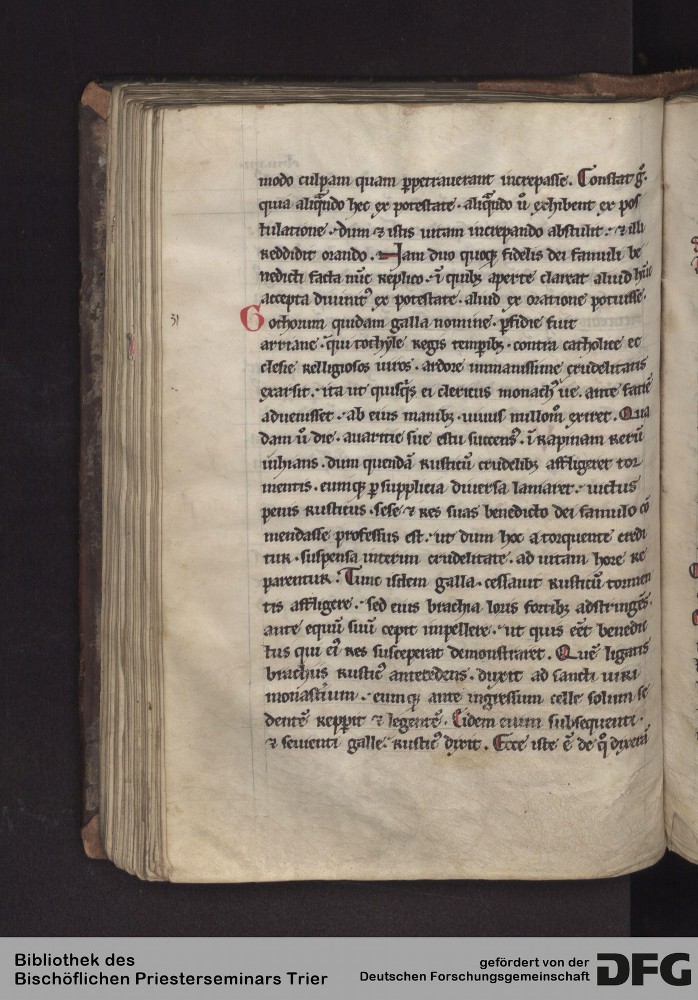 modo culpam quam ꝑpetrauerant increpasse. Constat g̊.
quia aliq̄ndo hec ex potestate. aliq̄ndo ū exhibent ex pos
tulatione. dum ⁊ istis uitam increpando abstulit. ⁊ illi
reddidit orando. Iam duo quoqꝫ fidelis dei famuli be
nedicti facta nūc replico. ī quibꝫ aperte clareat aliud hūc
accepta diuinitꝰ ex potestate. aliud ex oratione potuisse.
31
Gothorum quidam galla nomine. ꝑfidie fuit
arriane. qui tothyle regis temꝑibꝫ. contra catholice ec
clesie relligiosos uiros. ardore immanissime crudelitatis
exarsit. ita ut quisq̄s ei clericus monachꝰ ue. ante faciē
aduenisset. ab eius manibꝫ. uiuus nullom̊ exiret. Qua
dam ū die. auaritie sue estu succensꝰ. ī rapinam rerū
inhians. dum quendā rusticū crudelibꝫ affligeret tor
mentis. eumqꝫ ꝑ supplicia diuersa laniaret. uictus
penis rusticus. sese ⁊ res suas benedicto dei famulo cō
mendasse professus est. ut dum hoc a torquente credi
tur. suspensa interim crudelitate. ad uitam hore re
parentur. Tunc isdem galla. cessauit rusticū tormen
tis affligere. sed eius brachia loris fortibꝫ adstringēs.
ante equū suū cepit impellere. ut quis eēt benedic
tus qui eiꝰ res susceperat demonstraret. Quē ligatis
brachiis rusticꝰ antecedens. duxit ad sancti uiri
monast̄ium. eumqꝫ ante ingressum celle solum se
dentē repperit ⁊ legentē. Eidem enim subsequenti.
⁊ seuienti galle. rusticꝰ dixit. Ecce iste ē de q̊ dixerā
Bibliothek des
Bischöflichen Priesterseminars Trier
gefördert von der
Deutschen Forschungsgemeinschaft
DFG